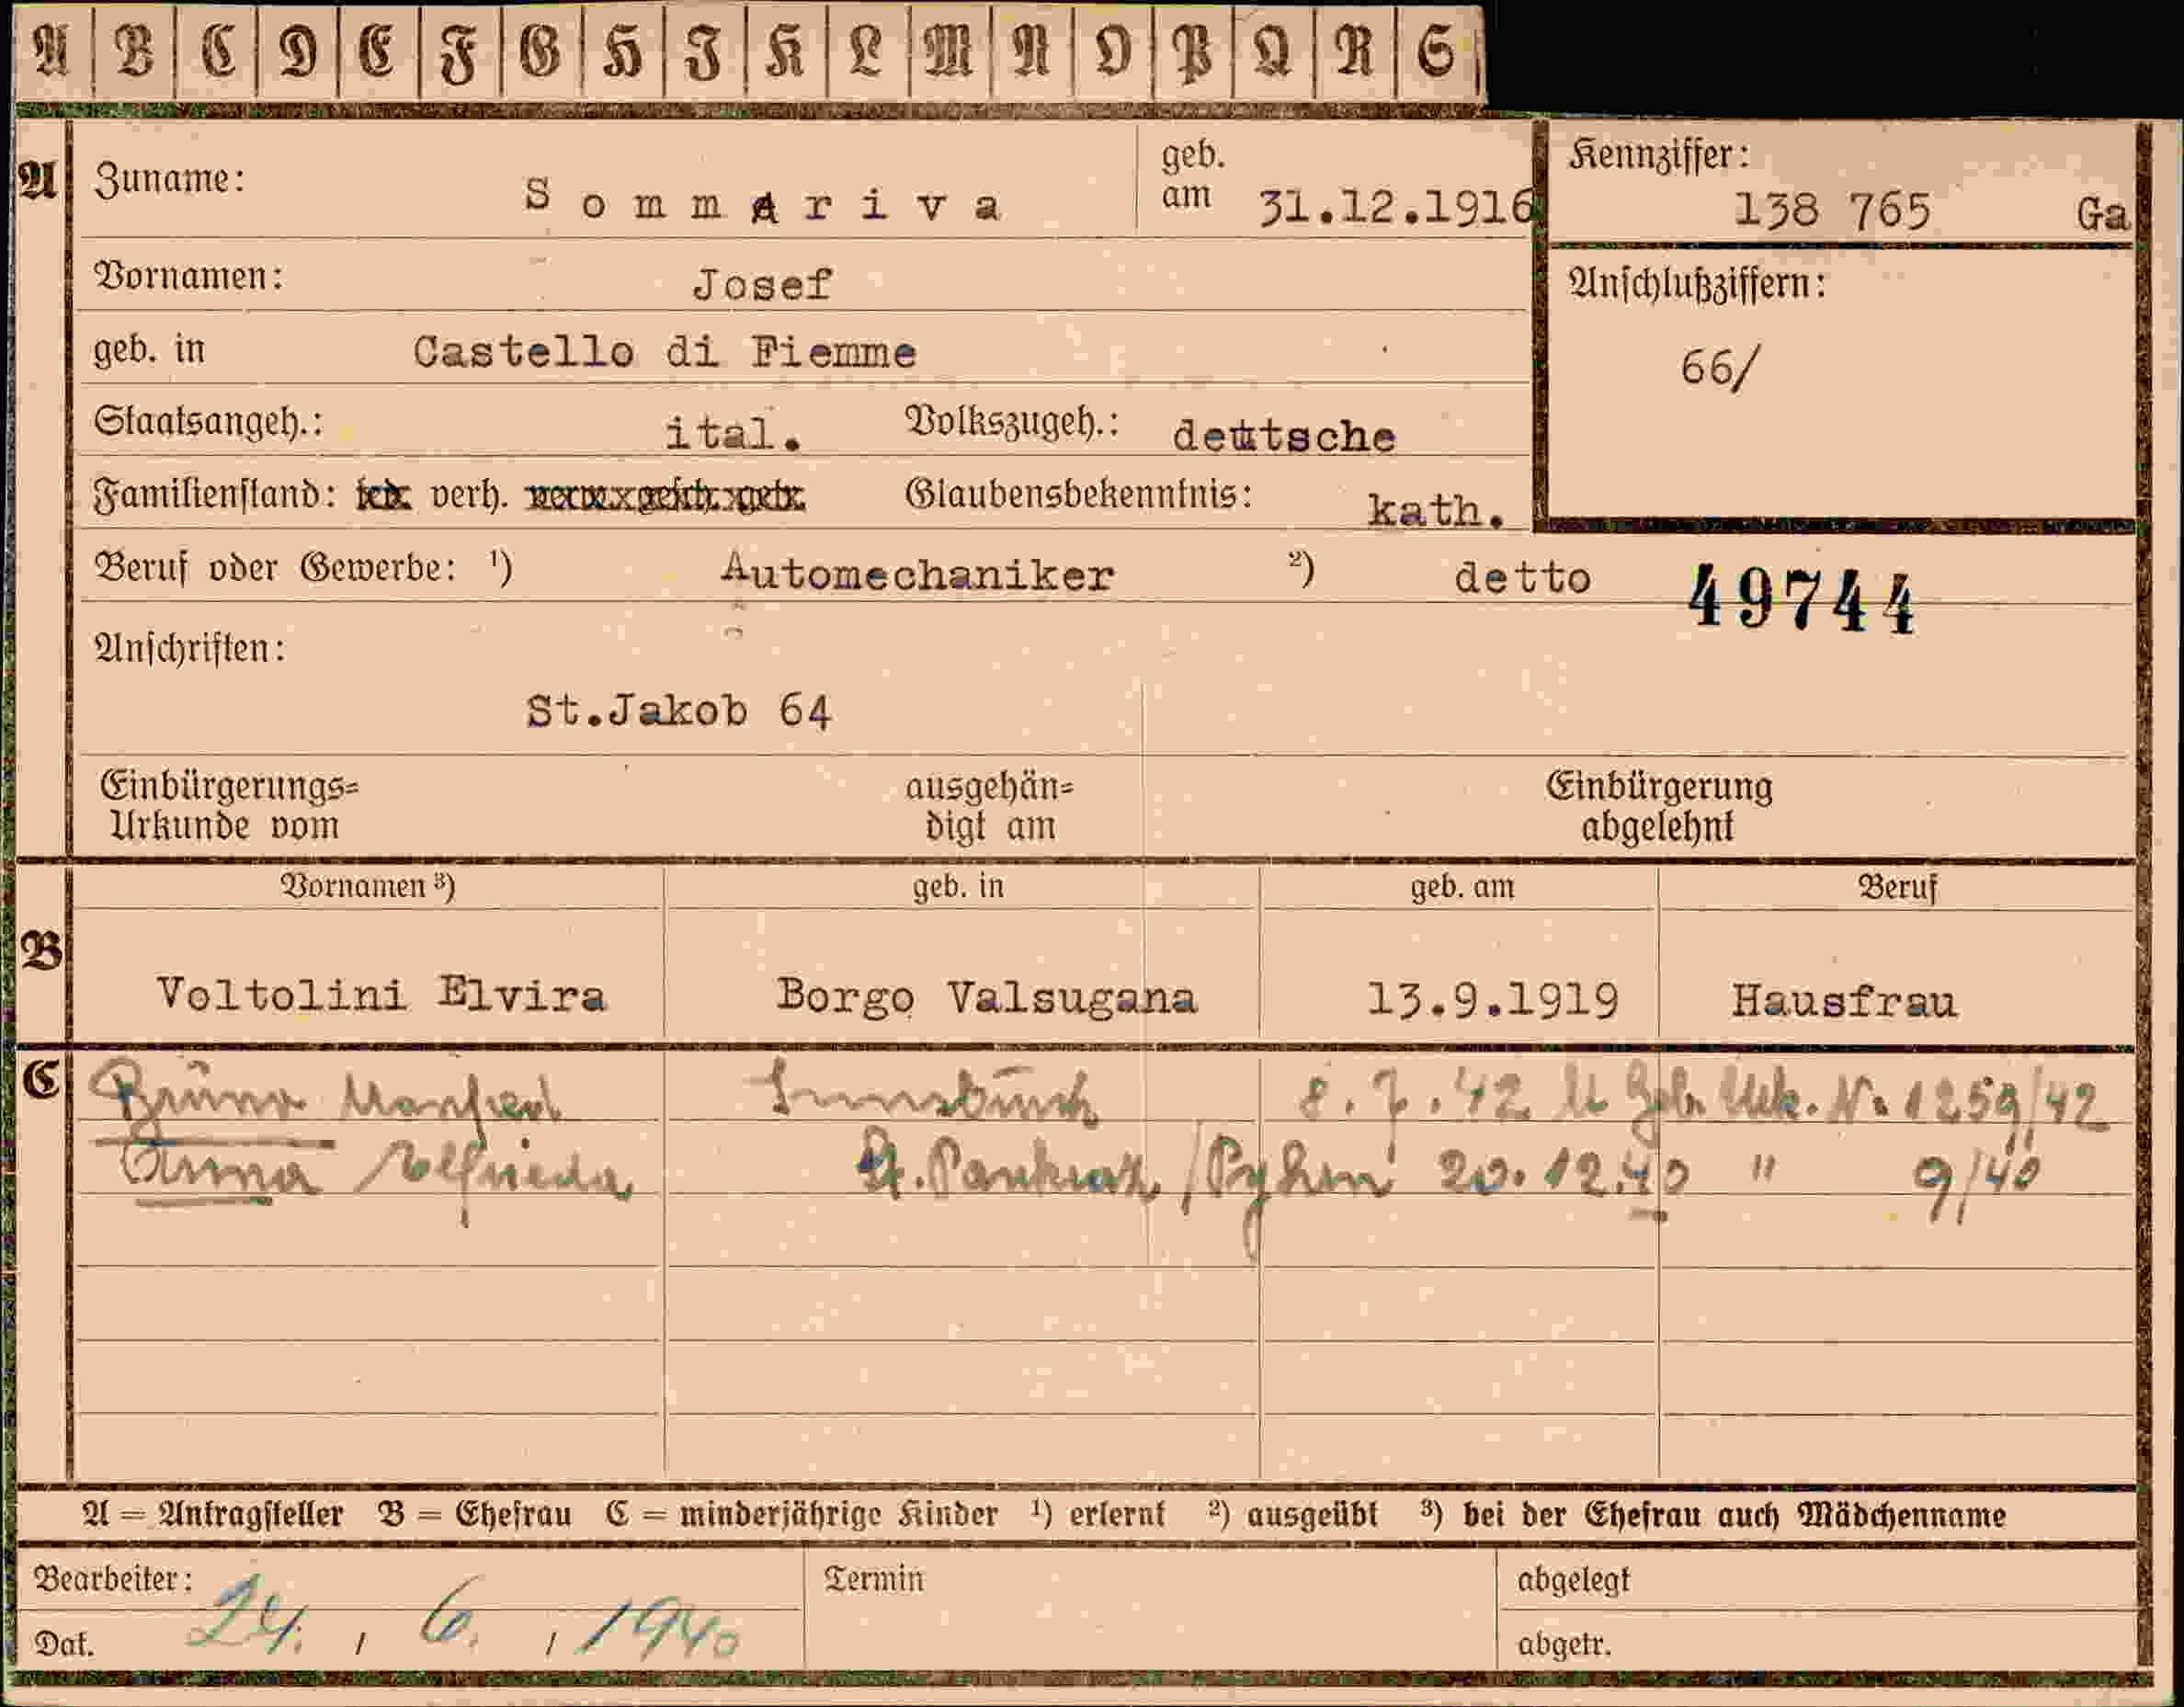 A B C D E F G H I K L M N O P Q R S
A Zuname: Sommariva geb. am 31.12.1916 Kennziffer: 138 765 Ga
Vornamen: Josef Anschlußziffern:
geb. in Castello di Fiemme 66/
Staatsangeh.: ital. Volkszugeh.: deutsche
Familienstand: led. verh. verw. gesch. getr. Glaubensbekenntnis: kath.
Beruf oder Gewerbe: ¹) Automechaniker ²) detto 49744
Anschriften:
St.Jakob 64
Einbürgerungs= ausgehän= Einbürgerung
Urkunde vom digt am abgelehnt
Vornamen ³) geb. in geb. am Beruf
B Voltolini Elvira Borgo Valsugana 13.9.1919 Hausfrau
C Bruno Manfred Innsbruck 8.7.42 Geb. Urk. Nr. 1259/42
Anna Elfrieda St. Pankraz /Pyhrn 20.12.40 " 9/40
A = Antragsteller B = Ehefrau C = minderjährige Kinder ¹) erlernt ²) ausgeübt ³) bei der Ehefrau auch Mädchenname
Bearbeiter: Termin abgelegt
Dat. 24. / 6. / 1940 abgetr.